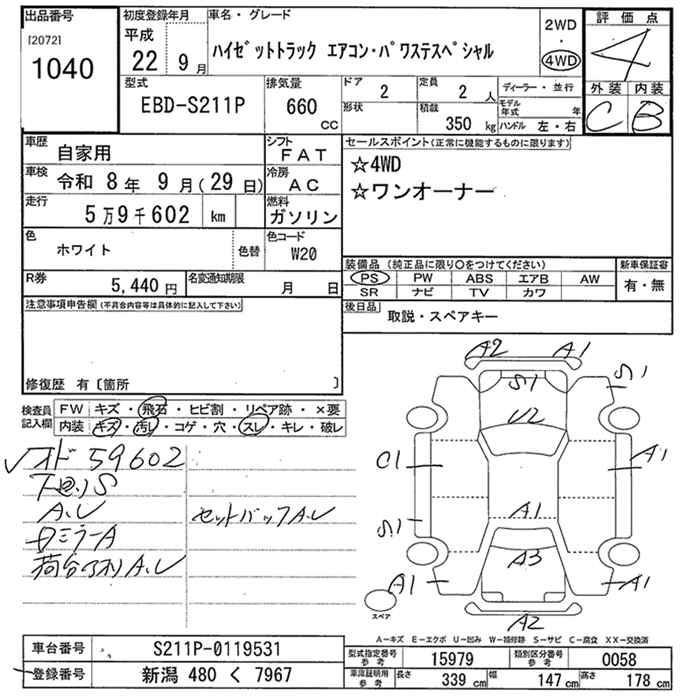 出品番号
[2072]
1040
初度登録年月
平成
22年 9月
車名・グレード
ハイゼットトラック エアコン・パワステスペシャル
2WD
・
4WD
評価点
4
外装 内装
C B
型式
EBD-S211P
排気量
660
CC
ドア 2
形状
定員 2 人
積載 350 kg
ディーラー・並行
モデル年式 年
ハンドル 左・右
車歴
自家用
シフト
FAT
車検
令和 8年 9月(29日)
冷房
AC
走行
5万9千602 km
燃料
ガソリン
色
ホワイト
色替
色コード
W20
R券
5,440円
名変通知期限
月 日
セールスポイント(正常に機能するものに限ります)
☆4WD
☆ワンオーナー
装備品(純正品に限り○をつけてください)
PS PW ABS エアB AW
SR ナビ TV カワ
新車保証書
有・無
後日品
取説・スペアキー
注意事項申告欄(不具合内容等は具体的に記入して下さい)
修復歴 有〔箇所 〕
検査員記入欄
FW キズ・飛石・ヒビ割・リペア跡・×要
内装 キズ・汚レ・コゲ・穴・スレ・キレ・破レ
オド 59602
S
A.U
セットバックA.U
ミラーA
荷台 A.U
A2 A1
S1
S1
U2
C1
A1
A1
S1
A3
A1
A1
A2
スペア
A-キズ E-エクボ U-凹み W-補修跡 S-サビ C-腐食 XX-交換済
車台番号
S211P-0119531
登録番号
新潟 480 く 7967
型式指定番号 参考
15979
類別区分番号 参考
0058
車庫証明用 参考
長さ 339 cm
幅 147 cm
高さ 178 cm